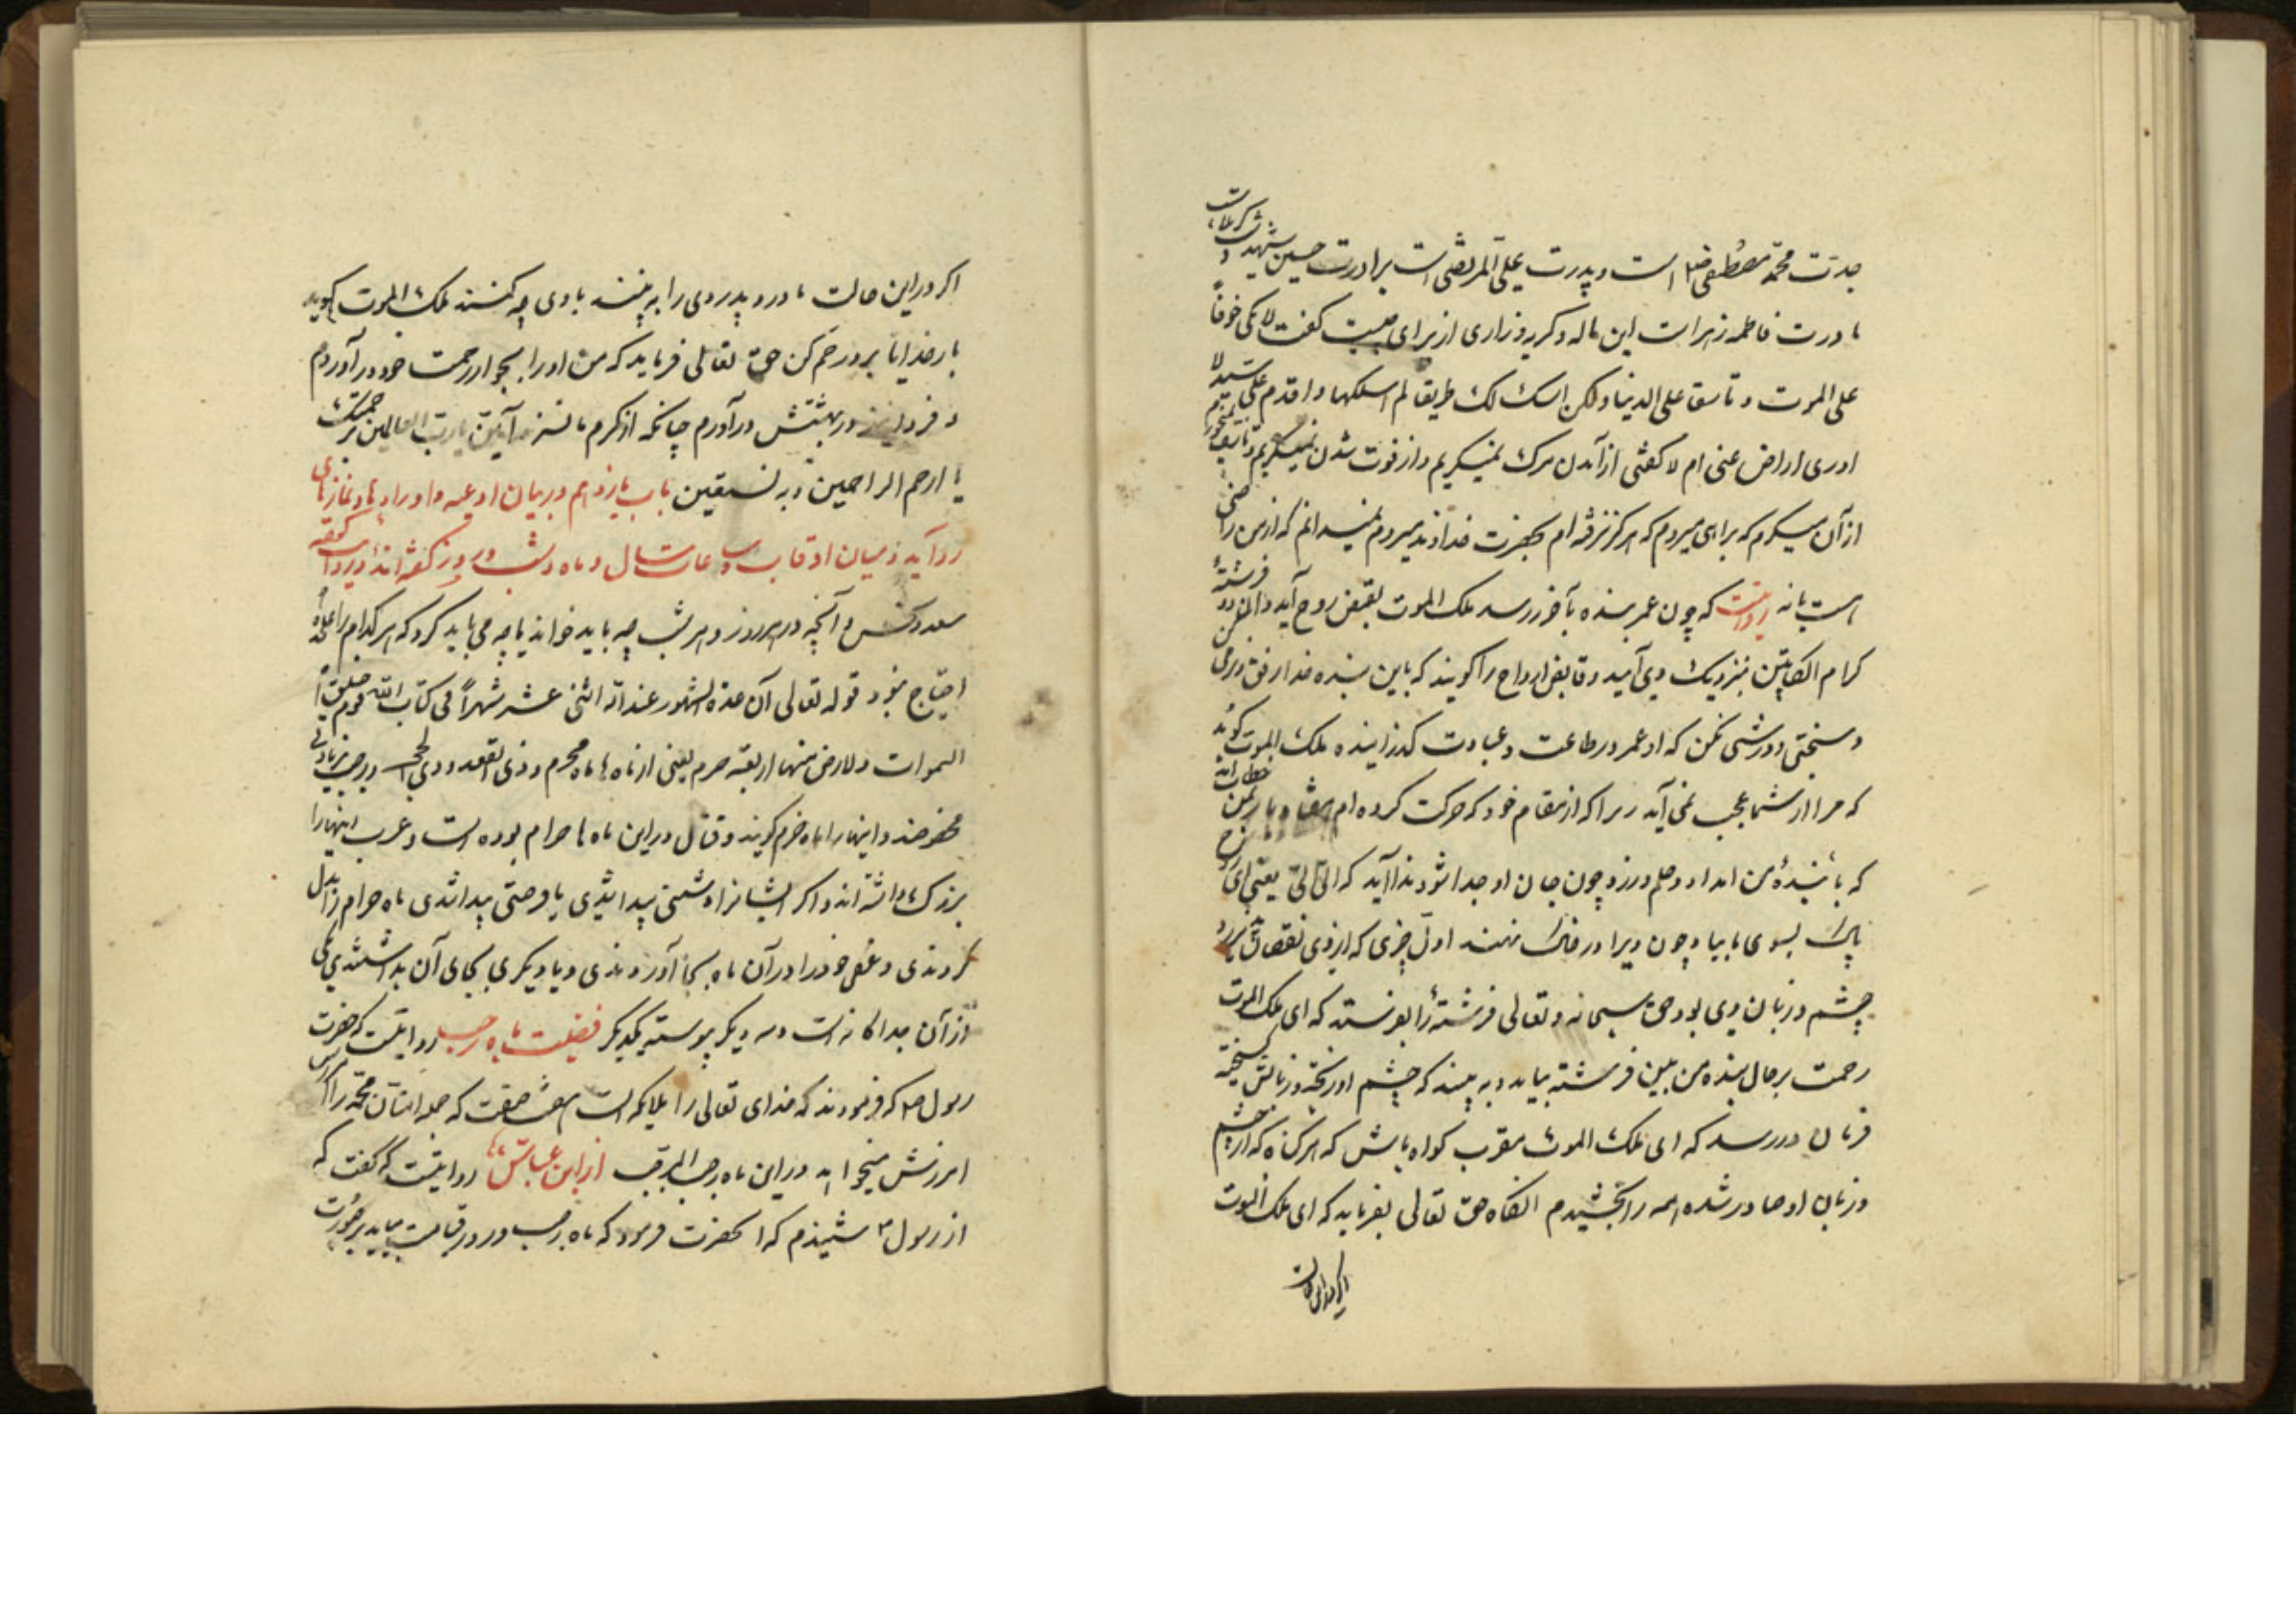 جدّت محمّد مصطفی است و پدرت علی المرتضی است برادرت حسین شهید کربلاست و
مادرت فاطمه زهرا است این ناله و گریه و زاری از برای چیست گفت لا ابکی خوفاً
علی الموت و تاسفا علی الدنیا و لکن اسلک طریقا لم اسلکها و اقدم علی سید لا
ادری اراض عنی ام لا گفتی از آمدن مرک نمیگریم و از فوت شدن نمیگریم و تاسف نمیخورم
از آن میگریم که براهی میروم که هرگز نرفته‌ام بحضرت خداوند میروم نمیدانم که از من راضی
است یا نه روایت که چون عمر بنده بآخر رسد ملک الموت بقبض روح آید و آن فرشته
کرام الکاتبین بنزدیک وی آمیند و قابض ارواح را گویند که باین بنده خدا رفق و نرمی
و سختی و درشتی مکن که او عمر در طاعت و عبادت گذرانیده ملک الموت گوید
که مرا از شما عجب نمی آید زیرا که از مقام خود که حرکت کرده‌ام خطاب
که با بندهٔ من امداد و حلم ورز و چون جان او جدا شود ندا آید که الیّ الیّ یعنی ای روح
پاک بسوی ما بیا و چون ویرا در خاک نهند اول چیزی که از وی نقصان گیرد
چشم و زبان وی بود حق سبحانه و تعالی فرشتهٔ را بفرستد که ای ملک الموت
رحمت بر حال بنده من ببین فرشته بیاید و به بیند که چشم او ریخته و زبانش گسیخته
فرمان در رسد که ای ملک الموت مقرب گواه باش که هر گناه که از چشم
و زبان او صادر شده همه را بخشیدم انگاه حق تعالی بفرماید که ای ملک الموت
اگر در این حالت
اگر در این حالت مادر و پدر وی را به بینند با وی چه کنند ملک الموت گوید
بار خدایا برو رحم کن حق تعالی فرماید که من او را بجوار رحمت خود در آوردم
و فردا نیز در بهشتش در آورم چنانکه از کرم ما سزد آمین یا رب العالمین برحمتک
یا ارحم الراحمین و به نستعین باب یازدهم در بیان ادعیه و اوراد ها و نمازهای
و آنچه در هر روز و هر شب چه باید خواند یا چه می باید کرد که هر کدام را علیحده
احتیاج نبود قوله تعالی ان عدة الشهور عند الله اثنی عشر شهراً فی کتاب الله یوم خلق
السموات و لارض منها اربعة حرم یعنی از ماه ها ماه محرم و ذی القعده و ذی الحجه و رجب بزیادتی
مخصوصند و اینها را ماه حرم گویند و قتال در این ماه ها حرام بوده است و عرب اینها را
بزرگ داشته اند و اگر ایشانرا دشمنی پیدا شدی یا وحشتی پیدا شدی ماه حرام را بدل
کردندی و غرض خود را در آن ماه بجا آوردندی و ماه دیگری بجای آن بداشتندی یکی
از آن جداگانه است و سه دیگر پیوسته یکدیگر فضیلت ماه رجب روایتست که حضرت
رسول ص که فرمودند که خدای تعالی را ملایکه است که جمله امتان محمد را
امرزش میخواهند در این ماه رجب المرجب از ابن عباس روایتست که گفت که
از رسول ص شنیدم که انحضرت فرمود که ماه رجب در روز قیامت بیاید بر صورت